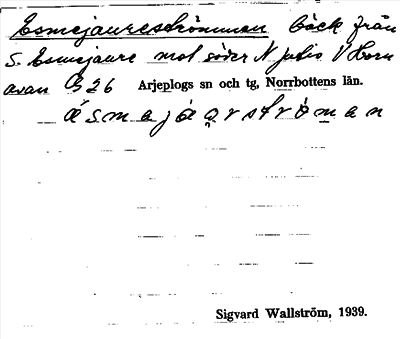 Esmejaureströmmen bäck från
S. Esmejaure mot söder N Jutis V Horn
avan G 26 Arjeplogs sn och tg, Norrbottens län.
äsmajáqrströman
Sigvard Wallström, 1939.